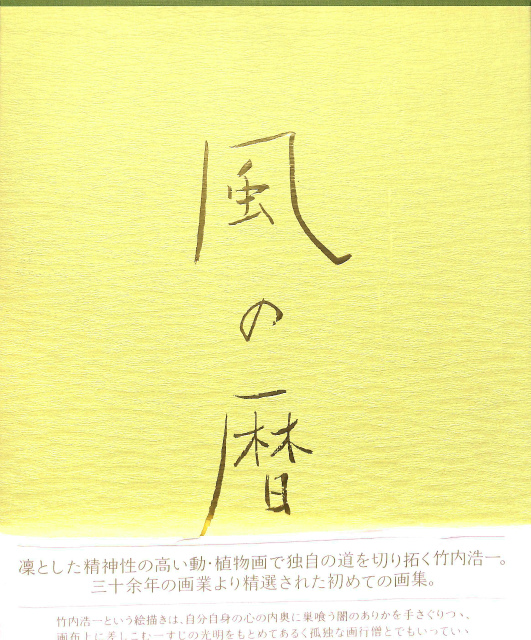 風の暦
凛とした精神性の高い動・植物画で独自の道を切り拓く竹内浩一。
三十余年の画業より精選された初めての画集。
竹内浩一という絵描きは、自分自身の心の内奥に巣喰う闇のありかを手さぐりつゝ、
画布上に差しこむ一すじの光明をもとめてあるく孤独な画行僧とでもいっていい